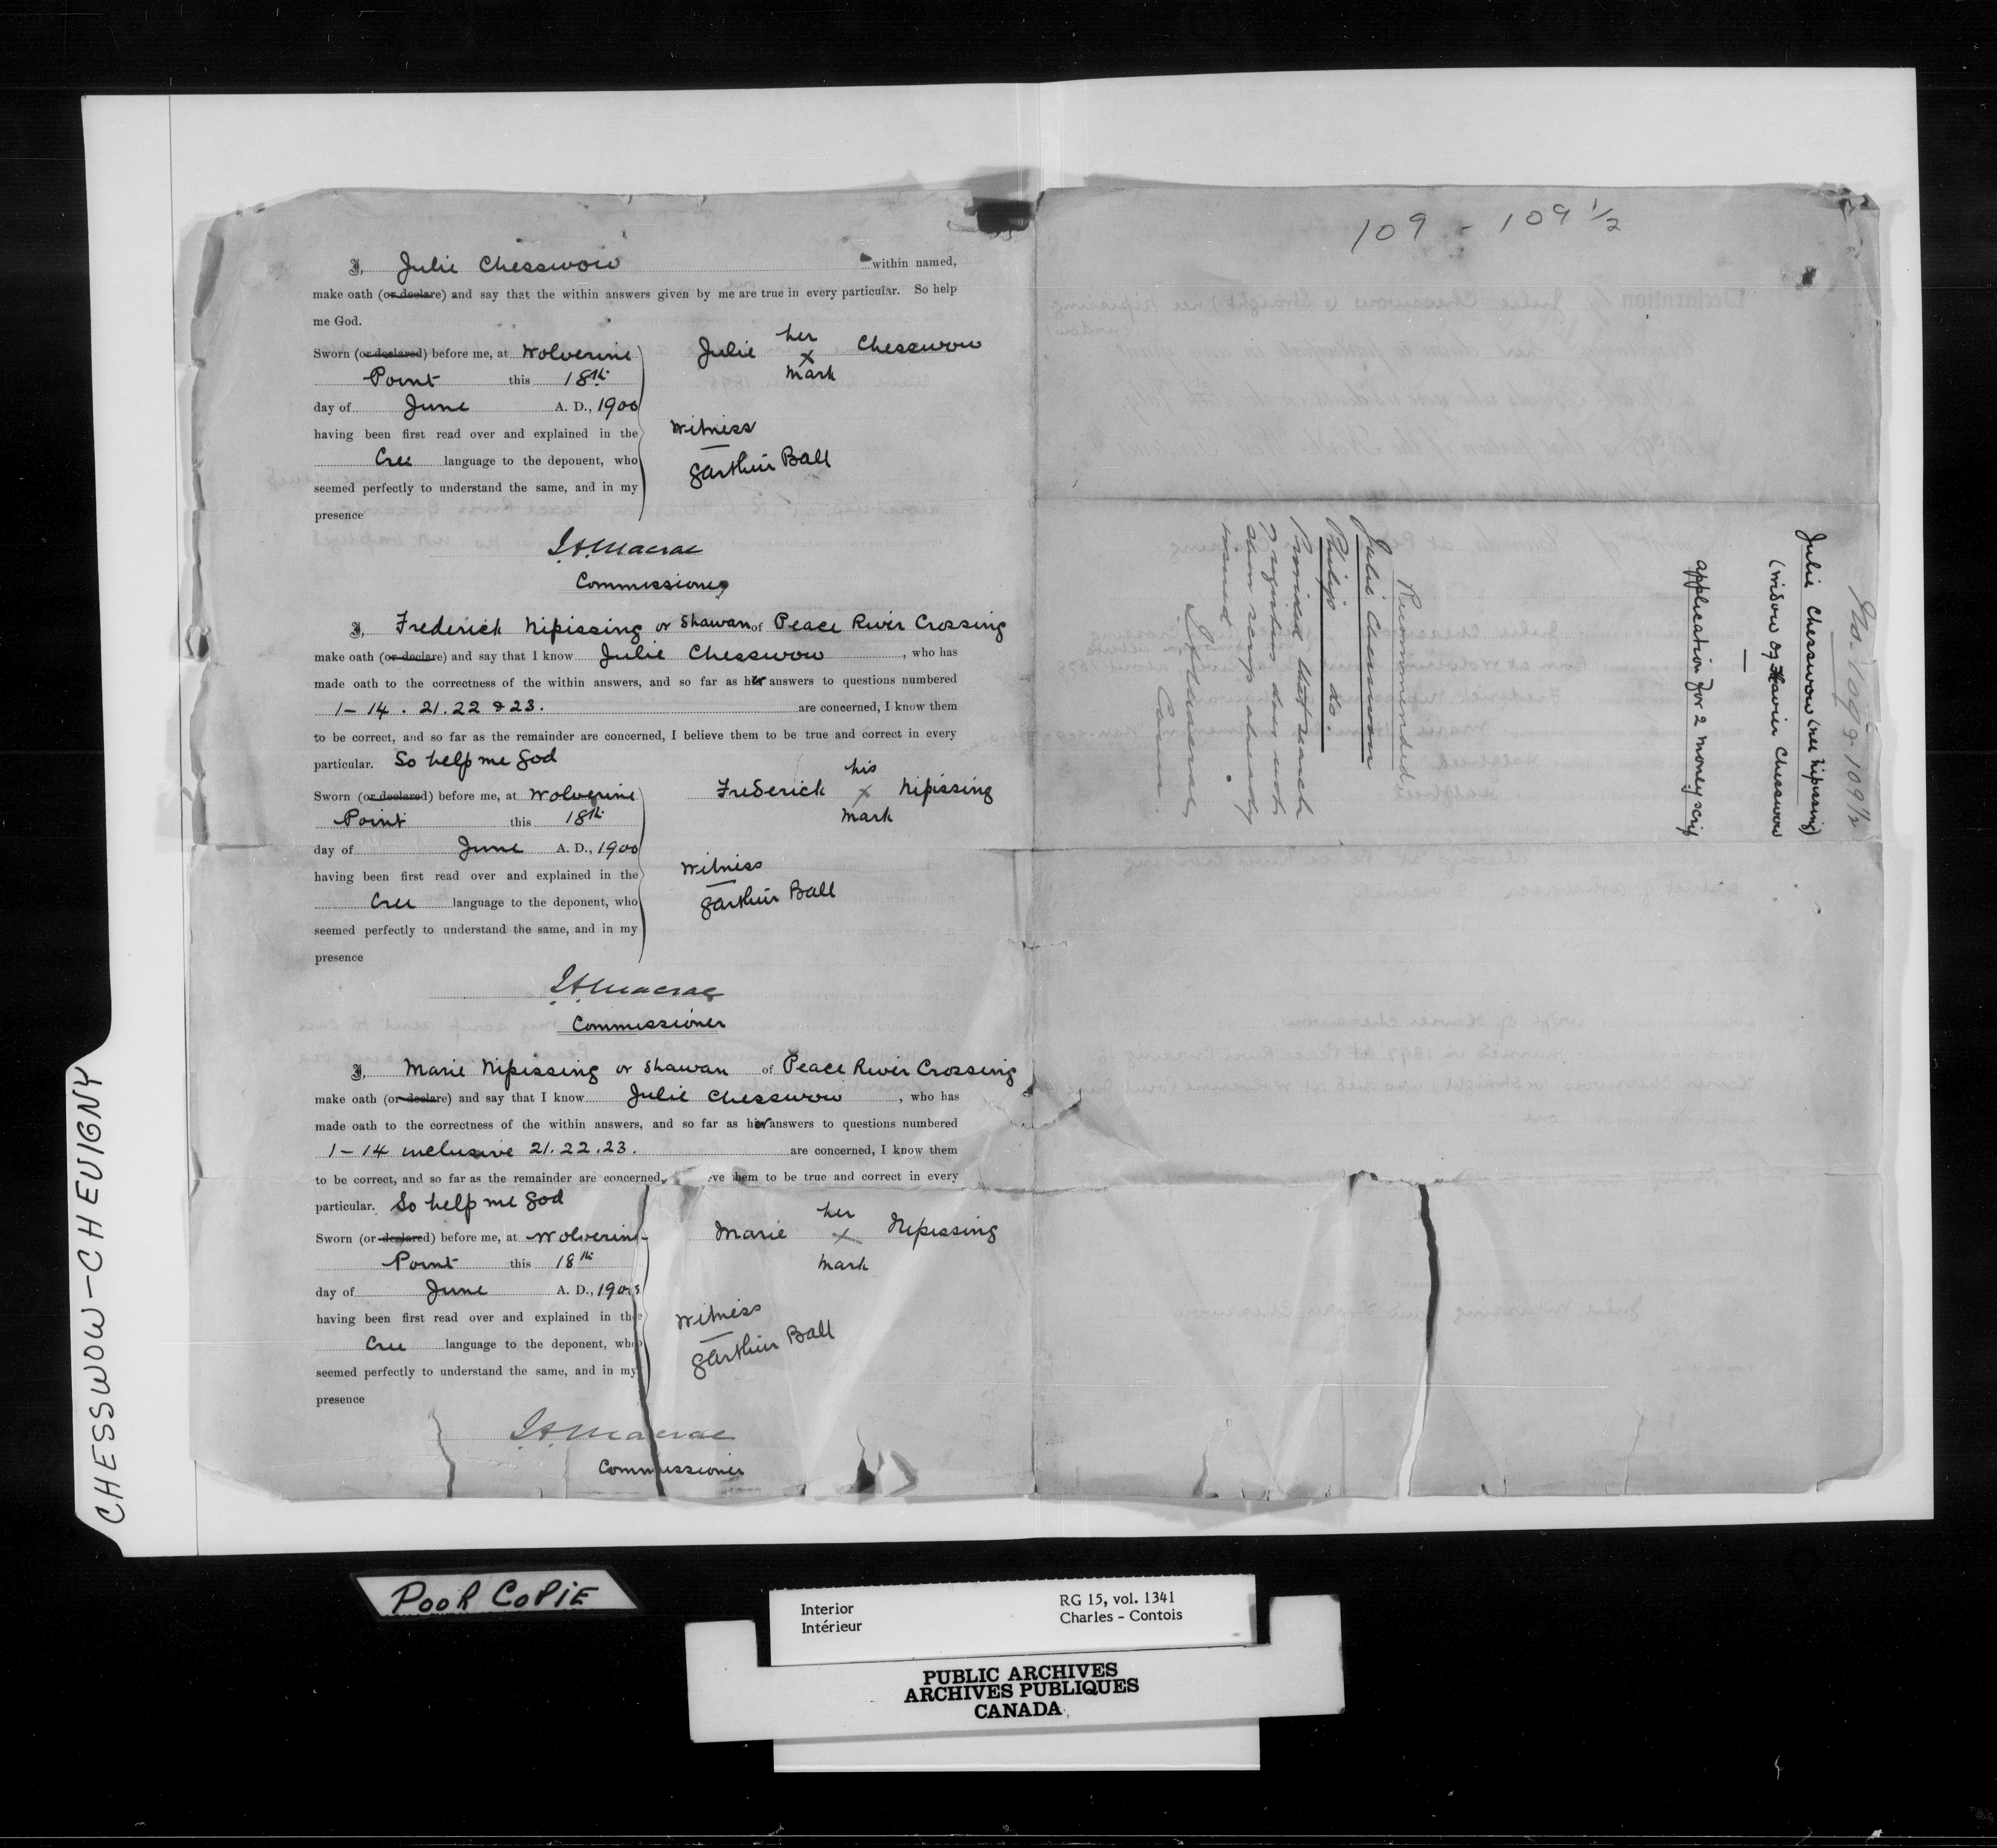 I, Julie Chesswow within named,
make oath (or declare) and say that the within answers given by me are true in every particular. So help
me God.
Sworn (or declared) before me, at Wolverine
Point this 18th
day of June A. D., 1900
having been first read over and explained in the
Cree language to the deponent, who
seemed perfectly to understand the same, and in my
presence
Julie her x mark Chesswow
Witness
Garthur Ball
J.A. Macrae
Commissioner
I, Frederick Nipissing or Shawan of Peace River Crossing
make oath (or declare) and say that I know Julie Chesswow, who has
made oath to the correctness of the within answers, and so far as her answers to questions numbered
1 – 14 . 21. 22 & 23. are concerned, I know them
to be correct, and so far as the remainder are concerned, I believe them to be true and correct in every
particular. So help me God
Sworn (or declared) before me, at Wolverine
Point this 18th
day of June A. D., 1900
having been first read over and explained in the
Cree language to the deponent, who
seemed perfectly to understand the same, and in my
presence
Frederick his x mark Nipissing
Witness
Garthur Ball
J.A. Macrae
Commissioner
I, Marie Nipissing or Shawan of Peace River Crossing
make oath (or declare) and say that I know Julie Chesswow, who has
made oath to the correctness of the within answers, and so far as her answers to questions numbered
1 – 14 inclusive 21. 22. 23. are concerned, I know them
to be correct, and so far as the remainder are concerned, eve them to be true and correct in every
particular. So help me God
Sworn (or declared) before me, at Wolverine
Point this 18th
day of June A. D., 190
having been first read over and explained in the
Cree language to the deponent, who
seemed perfectly to understand the same, and in my
presence
Marie her x mark Nipissing
Witness
Garthur Ball
J.A. Macrae
Commissioner
109 - 109 1/2
109 & 109 1/2
Julie Chesswow (nee Nipissing)
(widow of Xavier Chesswow
application for 2 money scrip
Recommended
Julie Chesswow
Philip do.
Provided that search
registers does not
show scrip already
issued
J.A. Macrae
Comr.
CHESSWOW-CHEVIGNY
POOR COPIE
Interior
Intérieur
RG 15, vol. 1341
Charles - Contois
PUBLIC ARCHIVES
ARCHIVES PUBLIQUES
CANADA